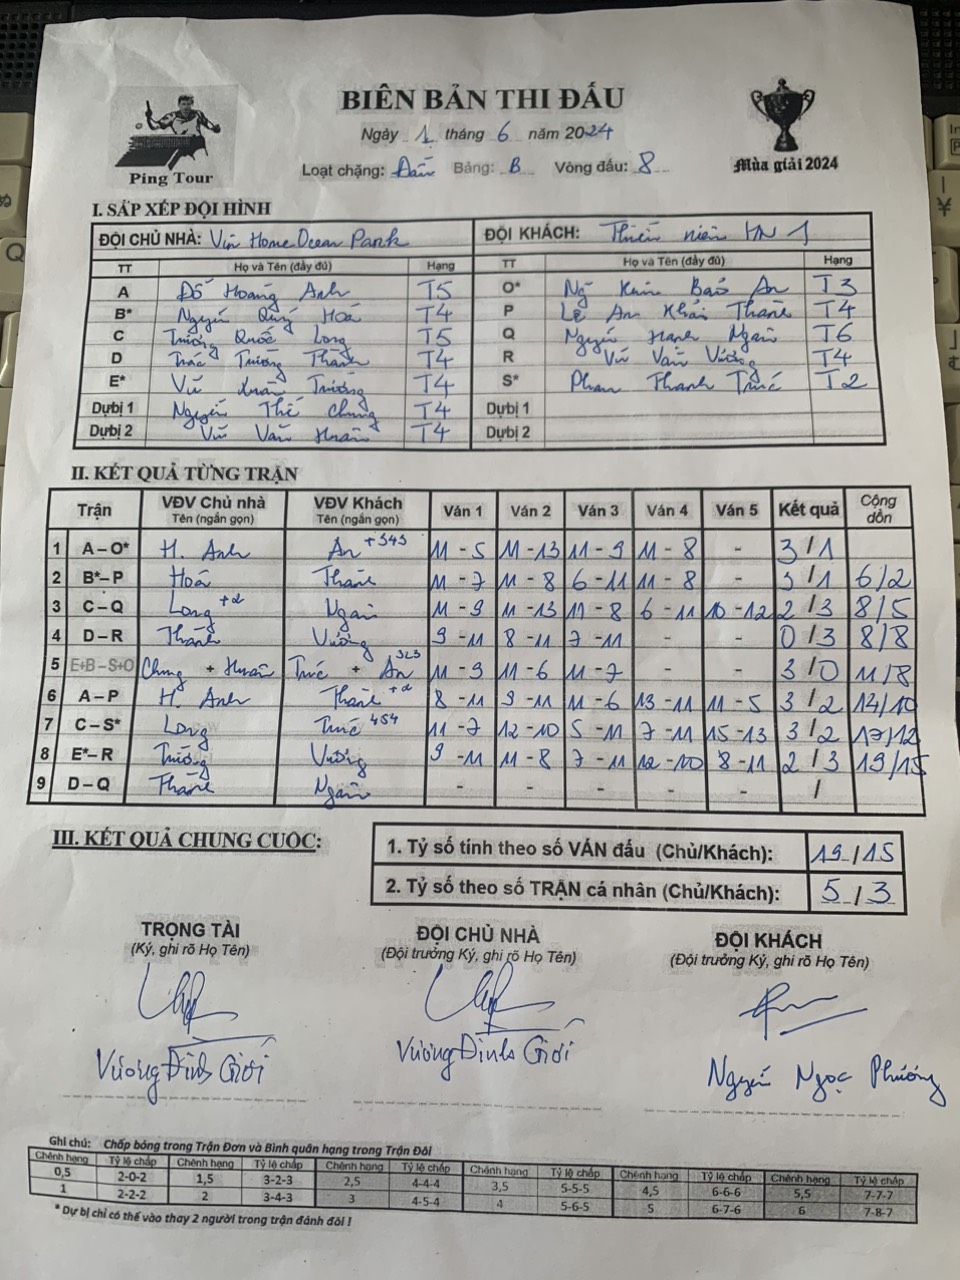 BIÊN BẢN THI ĐẤU
Ngày 1 tháng 6 năm 2024
Loạt chặng: Đấu Bảng: B Vòng đấu: 8
Ping Tour
Mùa giải 2024
I. SẮP XẾP ĐỘI HÌNH
ĐỘI CHỦ NHÀ: Vin Home Ocean Park ĐỘI KHÁCH: Thiên niên HN 1
TT Họ và Tên (đầy đủ) Hạng TT Họ và Tên (đầy đủ) Hạng
A Đỗ Hoàng Anh T5 O* Ng Kim Bảo An T3
B* Nguyễn Quý Hoá T4 P Lê An Khải Thành T4
C Trương Quốc Long T5 Q Nguyễn Hạnh Ngân T6
D Trường Thành T4 R Vũ Văn Vương T4
E* Vũ Xuân Trường T4 S* Phan Thanh Trúc T2
Dự bị 1 Nguyễn Thế Chung T4 Dự bị 1
Dự bị 2 Vũ Văn Huân T4 Dự bị 2
II. KẾT QUẢ TỪNG TRẬN
Trận VĐV Chủ nhà Tên (ngắn gọn) VĐV Khách Tên (ngắn gọn) Ván 1 Ván 2 Ván 3 Ván 4 Ván 5 Kết quả Cộng dồn
1 A – O* H. Anh An +343 11 - 5 11 - 13 11 - 9 11 - 8 - 3 / 1
2 B* – P Hoá Thành 11 - 7 11 - 8 6 - 11 11 - 8 - 3 / 1 6/2
3 C – Q Long +2 Ngân 11 - 9 11 - 13 11 - 8 6 - 11 10 - 12 2 / 3 8/5
4 D – R Thành Vương 9 - 11 8 - 11 7 - 11 - - 0 / 3 8/8
5 E+B – S+O Chung + Huân Trúc + An 323 11 - 9 11 - 6 11 - 7 - - 3 / 0 11/8
6 A – P H. Anh Thành +2 8 - 11 9 - 11 11 - 6 13 - 11 11 - 5 3 / 2 14/10
7 C – S* Long Trúc 454 11 - 7 12 - 10 5 - 11 7 - 11 15 - 13 3 / 2 17/12
8 E* – R Trường Vương 9 - 11 11 - 8 7 - 11 12 - 10 8 - 11 2 / 3 19/15
9 D – Q Thành Ngân - - - - - /
III. KẾT QUẢ CHUNG CUỘC:
1. Tỷ số tính theo số VÁN đấu (Chủ/Khách): 19 / 15
2. Tỷ số theo số TRẬN cá nhân (Chủ/Khách): 5 / 3
TRỌNG TÀI ĐỘI CHỦ NHÀ ĐỘI KHÁCH
(Ký, ghi rõ Họ Tên) (Đội trưởng Ký, ghi rõ Họ Tên) (Đội trưởng Ký, ghi rõ Họ Tên)
Vương Đình Giới Vương Đình Giới Nguyễn Ngọc Phương
Ghi chú: Chấp bóng trong Trận Đơn và Bình quân hạng trong Trận Đôi
Chênh hạng Tỷ lệ chấp Chênh hạng Tỷ lệ chấp Chênh hạng Tỷ lệ chấp Chênh hạng Tỷ lệ chấp Chênh hạng Tỷ lệ chấp Chênh hạng Tỷ lệ chấp
0,5 2-0-2 1,5 3-2-3 2,5 4-4-4 3,5 5-5-5 4,5 6-6-6 5,5 7-7-7
1 2-2-2 2 3-4-3 3 4-5-4 4 5-6-5 5 6-7-6 6 7-8-7
* Dự bị chỉ có thể vào thay 2 người trong trận đánh đôi !